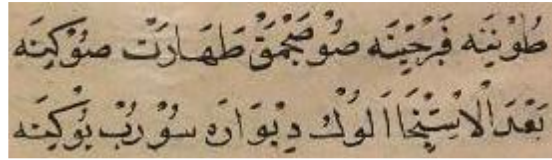 طُوْنِيَنه فَرْجِيَنه صُوصَجْمَقْ طَهَارَتْ صُوْكِيَنه
بَعْدَ الْاِسْتِنْجَا اَلُوكْ دِيوَارَه سُوْرُبْ يُوْكِيَنه